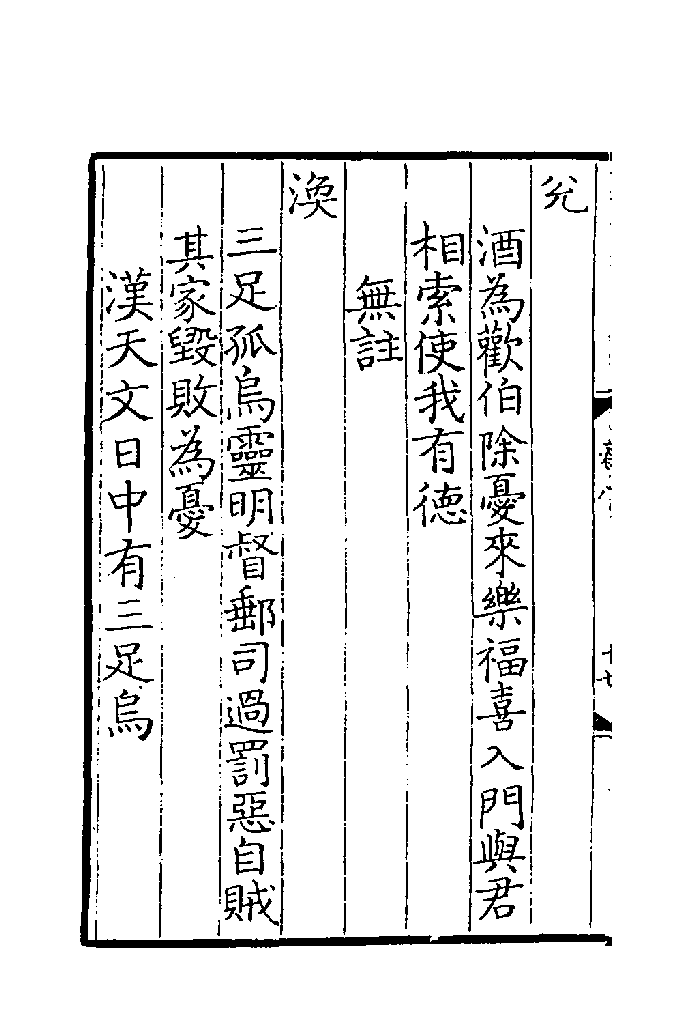 兊
酒為歡伯除憂來樂福喜入門與君
相索使我有德
無註
渙
三足孤烏靈明督郵司過罰惡自賊
其家毀敗為憂
漢天文日中有三足烏